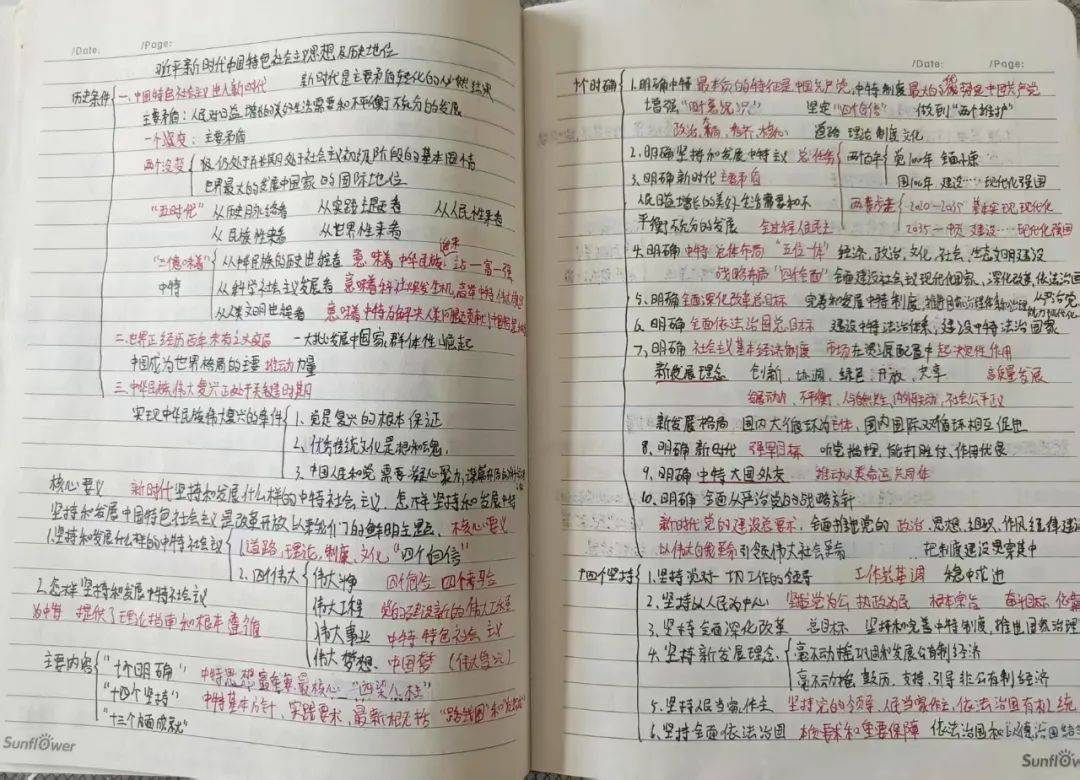 /Date: /Page:
习近平新时代中国特色社会主义思想及历史地位
历史条件 一、中国特色社会主义进入新时代 新时代是主要矛盾转化的必然结果
主要矛盾：人民对日益增长的美好生活需要和不平衡不充分的发展
一个改变：主要矛盾
两个没变 我仍处于并长期处于社会主义初级阶段的基本国情
世界最大的发展中国家的国际地位
"五时代" 从历史脉络看 从实践主题看 从人民性来看
从民族性来看 从世界性来看
"三个意味着" 从中华民族的历史也程看 意味着中华民族 迎来 站一富一强
中特 从科学社会主义发展看 意味着科社焕发生机,高举中特伟大旗帜
从人类文明也程看 意味着中特为解决人类问题贡献了中国智慧
二、世界正经历百年未有之大变局 一大批发展中国家群体性崛起
中国成为世界格局的主要推动力量
三、中华民族伟大复兴正处于关键的时期
实现中华民族伟大复兴的条件 1、党是复兴的根本保证
2、优秀传统文化是根和魂,
3、中国人民和党
核心要义 新时代坚持和发展什么样的中特社会主义、怎样坚持和发展中特
坚持和发展中国特色社会主义是改革开放以来我们的鲜明主题 核心要义
1.坚持和发展什么样的中特社会主义 1.道路,理论,制度,文化,"四个自信"
2.四个伟大 伟大斗争 四个考验
伟大工程 党的建设新的伟大工程
伟大事业 中特特色社会主义
伟大梦想、中国梦 (伟大复兴)
2.怎样坚持和发展中特社会主义
为中特 提供了理论指南和根本遵循
主要内容 "十个明确" 中特思想最重要最核心 "四梁八柱"
"十四个坚持" 中特基本方针,实践要求,最新概括 "路线图"和
"十三个方面成就"
Sunflower
/Date: /Page:
十个明确 1.明确中特最本质的特征是中国共产党,中特制度最大的优势是中国共产党
增强"四个意识" 坚定"四个自信" 做到"两个维护"
政治,大局,看齐,核心 道路 理论 制度 文化
2.明确坚持和发展中特主义 总任务 两个百年 党100年 全面小康
国100年,建设……现代化强国
3.明确新时代主要矛盾
人民日益增长的美好生活需要和不 两步走 2020—2035 基本实现现代化
平衡不充分的发展 2035—中页 建设……现代化强国
4.明确中特总体布局 "五位一体" 经济、政治,文化,社会,生态文明建设
战略布局 "四个全面" 全面建设社会主义现代化国家、深化改革,依法治国
从严治党
5.明确全面深化改革总目标 完善和发展中特制度,推进国家治理体系和治理能力现代化
6.明确全面依法治国总目标 建设中特法治体系,建设中特法治国家
7.明确 社会主义基本经济制度 市场在资源配置中起决定性作用
新发展理念 创新、协调、绿色、开放、共享 高质量发展
不平衡,人与自然和谐,内外联动,社会公平正义
新发展格局 国内大循环为主体,国内国际双循环相互促进
8.明确新时代 强军目标 听党指挥,能打胜仗,作风优良
9.明确中特大国外交 推动人类命运共同体
10.明确全面从严治党的战略方针
新时代党的建设总要求,全面推进党的政治、思想、组织、作风纪律建设
以伟大自我革命引领伟大社会革命 把制度建设贯穿其中
十四个坚持 1.坚持党对一切工作的领导 工作总基调 稳中求进
2.坚持以人民为中心 坚持立党为公 执政为民 根本宗旨 奋斗目标
3.坚持全面深化改革 总目标 坚持和完善中特制度,推进国家治理
4.坚持新发展理念、 毫不动摇巩固和发展公有制经济
毫不动摇 鼓励、支持、引导非公有制经济
5.坚持人民当家作主 坚持党的领导,人民当家作主,依法治国有机统
6.坚持全面依法治国 本质要求和重要保障 依法治国和以德治国结合
Sunflow